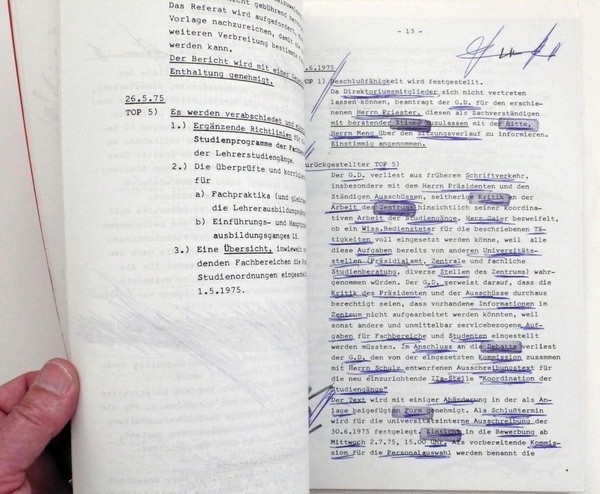 nicht gebührend
Das Referat wird aufgefordert,
Vorlage nachzureichen, damit
weiteren Verbreitung
werden kann.
Der Bericht wird mit einer
Enthaltung genehmigt.
26.5.75
TOP 5) Es werden verabschiedet und
1.) Ergänzende Richtlinien für
Studienprogramme der
der Lehrerstudiengänge.
2.) Die Überprüfte und
für
a) Fachpraktika (und
die
b) Einführungs- und
ausbildungsganges
3.) Eine Übersicht, inwieweit
denden Fachbereichen die
Studienordnungen
1.5.1975.
- 13 -
.6.1975
TOP 1) Beschlußfähigkeit wird festgestellt.
Da Direktoriumsmitglieder sich nicht vertreten
lassen können, beantragt der G.D. für den erschie-
nenen Herrn Priester, diesen als Sachverständigen
mit beratender Stimme zuzulassen mit der Bitte,
Herrn Meng über den Sitzungsverlauf zu informieren.
Einstimmig angenommen.
urückgestellter TOP 5)
Der G.D. verliest aus früherem Schriftverkehr,
insbesondere mit dem Herrn Präsidenten und den
Ständigen Ausschüssen, seitherige Kritik an der
Arbeit des Zentrums hinsichtlich seiner koordina-
tiven Arbeit der Studiengänge. Herr Gaier bezweifelt,
ob ein Wiss.Bediensteter für die beschriebenen Tä-
tigkeiten voll eingesetzt werden könne, weil alle
diese Aufgaben bereits von anderen Universitäts-
stellen (Präsidialamt, Zentrale und fachliche
Studienberatung, diverse Stellen des Zentrums) wahr-
genommen würden. Der G.D. verweist darauf, daß die
Kritik des Präsidenten und der Ausschüsse durchaus
berechtigt seien, dass vorhandene Informationen im
Zentrum nicht aufgearbeitet werden könnten, weil
sonst andere und unmittelbar servicebezogene Auf-
gaben für Fachbereiche und Studenten eingestellt
werden müssten. Im Anschluss an die Debatte verliest
der G.D. den von der eingesetzten Kommission zusammen
mit Herrn Schulz entworfenen Ausschreibungstext für
die neu einzurichtende IIa-Stelle "Koordination der
Studiengänge"
Der Text wird mit einiger Abänderung in der als An-
lage beigefügten Form genehmigt. Als Schlußtermin
wird für die universitätsinterne Ausschreibung der
30.6.1975 festgelegt. Einsicht in die Bewerbung ab
Mittwoch 2.7.75, 15.00 Uhr. Als vorbereitende Kommis-
sion für die Personalauswahl werden benannt die